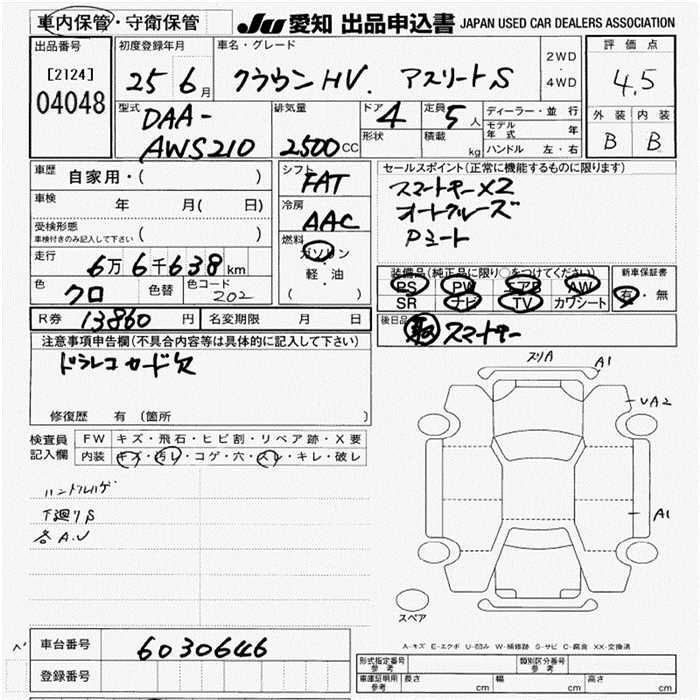 車内保管・守衛保管
JU 愛知 出品申込書 JAPAN USED CAR DEALERS ASSOCIATION
出品番号 [2124] 04048
初度登録年月 25 6月
車名・グレード クラウンHV. アスリートS
2WD・4WD
評価点 4.5
外装 B 内装 B
型式 DAA-AWS210
排気量 2500CC
ドア 4
形状
定員 5人
積載 kg
ディーラー・並行
モデル年式 年
ハンドル 左・右
車歴 自家用・( )
車検 年 月( 日)
受検形態 車検付きのみ記入して下さい ( )
走行 6万6千638km
色 クロ 色替 色コード 202
シフト FAT
冷房 AAC
燃料 ガソリン・軽油 ( )
セールスポイント(正常に機能するものに限ります)
スマートキーX2
オートクルーズ
Pシート
装備品(純正品に限り○をつけてください)
PS PW エアB AW
SR ナビ TV カワシート
新車保証書 有・無
後日品 スマートキー
R券 13860円 名変期限 月 日
注意事項申告欄(不具合内容等は具体的に記入して下さい)
ドラレコ カード欠
修復歴 有 (箇所 )
検査員記入欄
FW キズ・飛石・ヒビ割・リペア跡・X要
内装 キズ・汚レ・コゲ・穴・スレ・キレ・破レ
ハンドルハゲ
下廻りS
各A.U
スリA A1
UA2
A1
スペア
A-キズ E-エクボ U-凹み W-補修跡 S-サビ C-腐食 XX-交換済
車台番号 6030646
登録番号
型式指定番号 参考
類別区分番号 参考
車庫証明用 参考 長さ cm 幅 cm 高さ cm